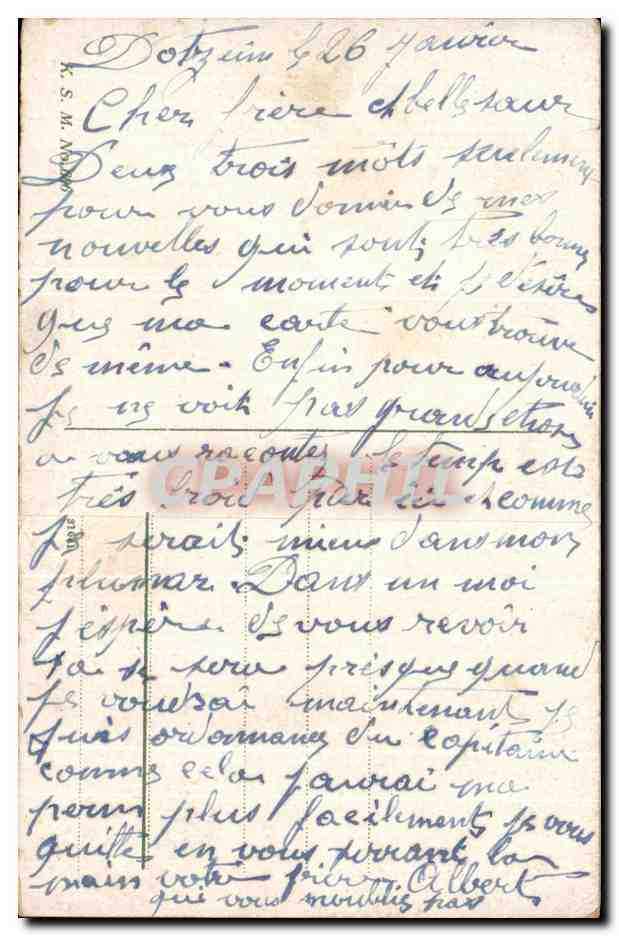 Dotzeim le 26 Janvier
Cher frère et belle sœur
Deux trois môts seulement
pour vous donnér de mes
nouvelles qui sont très bonnes
pour le moments et je désire
que ma carte vous trouve
de même. Enfin pour aujourdhui
je ne voit pas grand choses
a vous raconter le temp est
très froid par ici et comme
je serait mieux dans mon
plumar. Dans un moi
j'éspère de vous revoir
sa se sera présque quand
je voudrai maintenant je
suis ordonnance du capitaine
comme cela jaurai ma
perm plus facilement je vous
quitte en vous serrant la
main votre frère Albert
qui vous moublie pas
K. S. M. No.
CPAPHIL